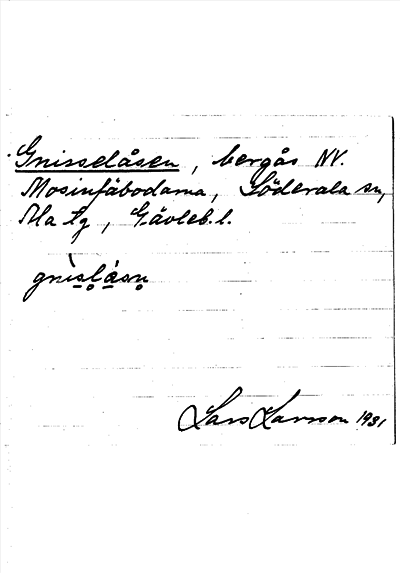 Gnisselåsen, bergås NV.
Mosinfäbodarna, Söderala sn,
Ala tg, Gävleb. l.
gnìsl̥ásn̥
Lars Larsson 1931